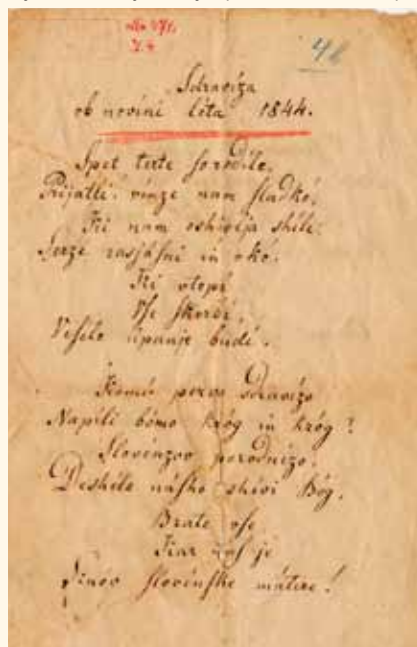 4b
Sdraviza
ob novini leta 1844.
Spet terte so rodile,
Prijatli! vinze nam sladkó,
Ki nam oshivlja shile,
Serze rasjásni in okó.
Ki vtopi
Vse skerbi,
Veselo upanje budi.
Komú pervo sdravizo
Napili bómo króg in króg?
Slovénzov porodnizo,
Deshélo násho shivi Bóg,
Brate vse
Kar nas je
Sinov slovénske mátere!